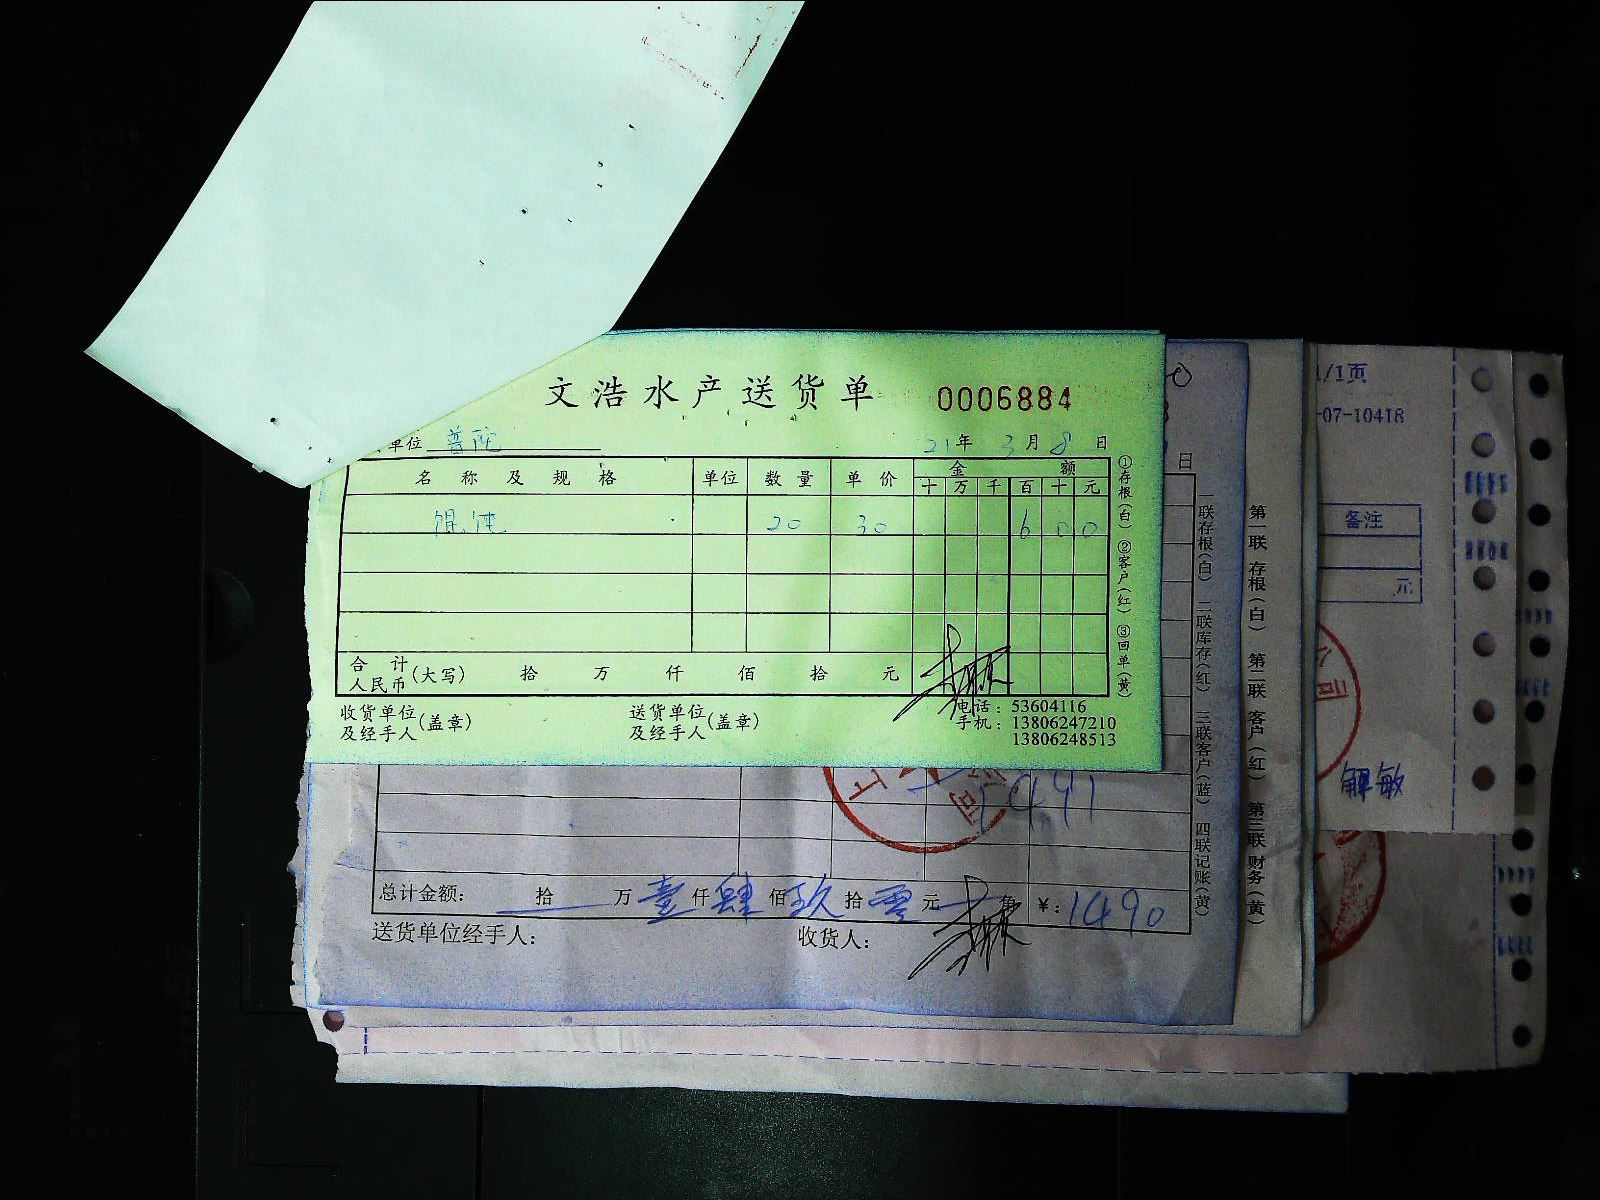 文浩水产送货单 0006884
单位 普陀 21年 3月 8日
名称及规格 单位 数量 单价 金额
十 万 千 百 十 元
馄饨 20 30 6 0 0
合计人民币(大写) 拾 万 仟 佰 拾 元
收货单位及经手人(盖章) 送货单位及经手人(盖章)
电话:53604116
手机:13806247210
13806248513
①存根(白) ②客户(红) ③回单(黄)
1491
总计金额: 拾 万 壹 仟 肆 佰 玖 拾 零 元 角 ¥:1490
送货单位经手人: 收货人:
日
一联存根(白) 二联库存(红) 三联客户(蓝) 四联记账(黄)
第一联 存根(白) 第二联 客户(红) 第三联 财务(黄)
1/1页
-07-10418
备注
元
公司
解敏